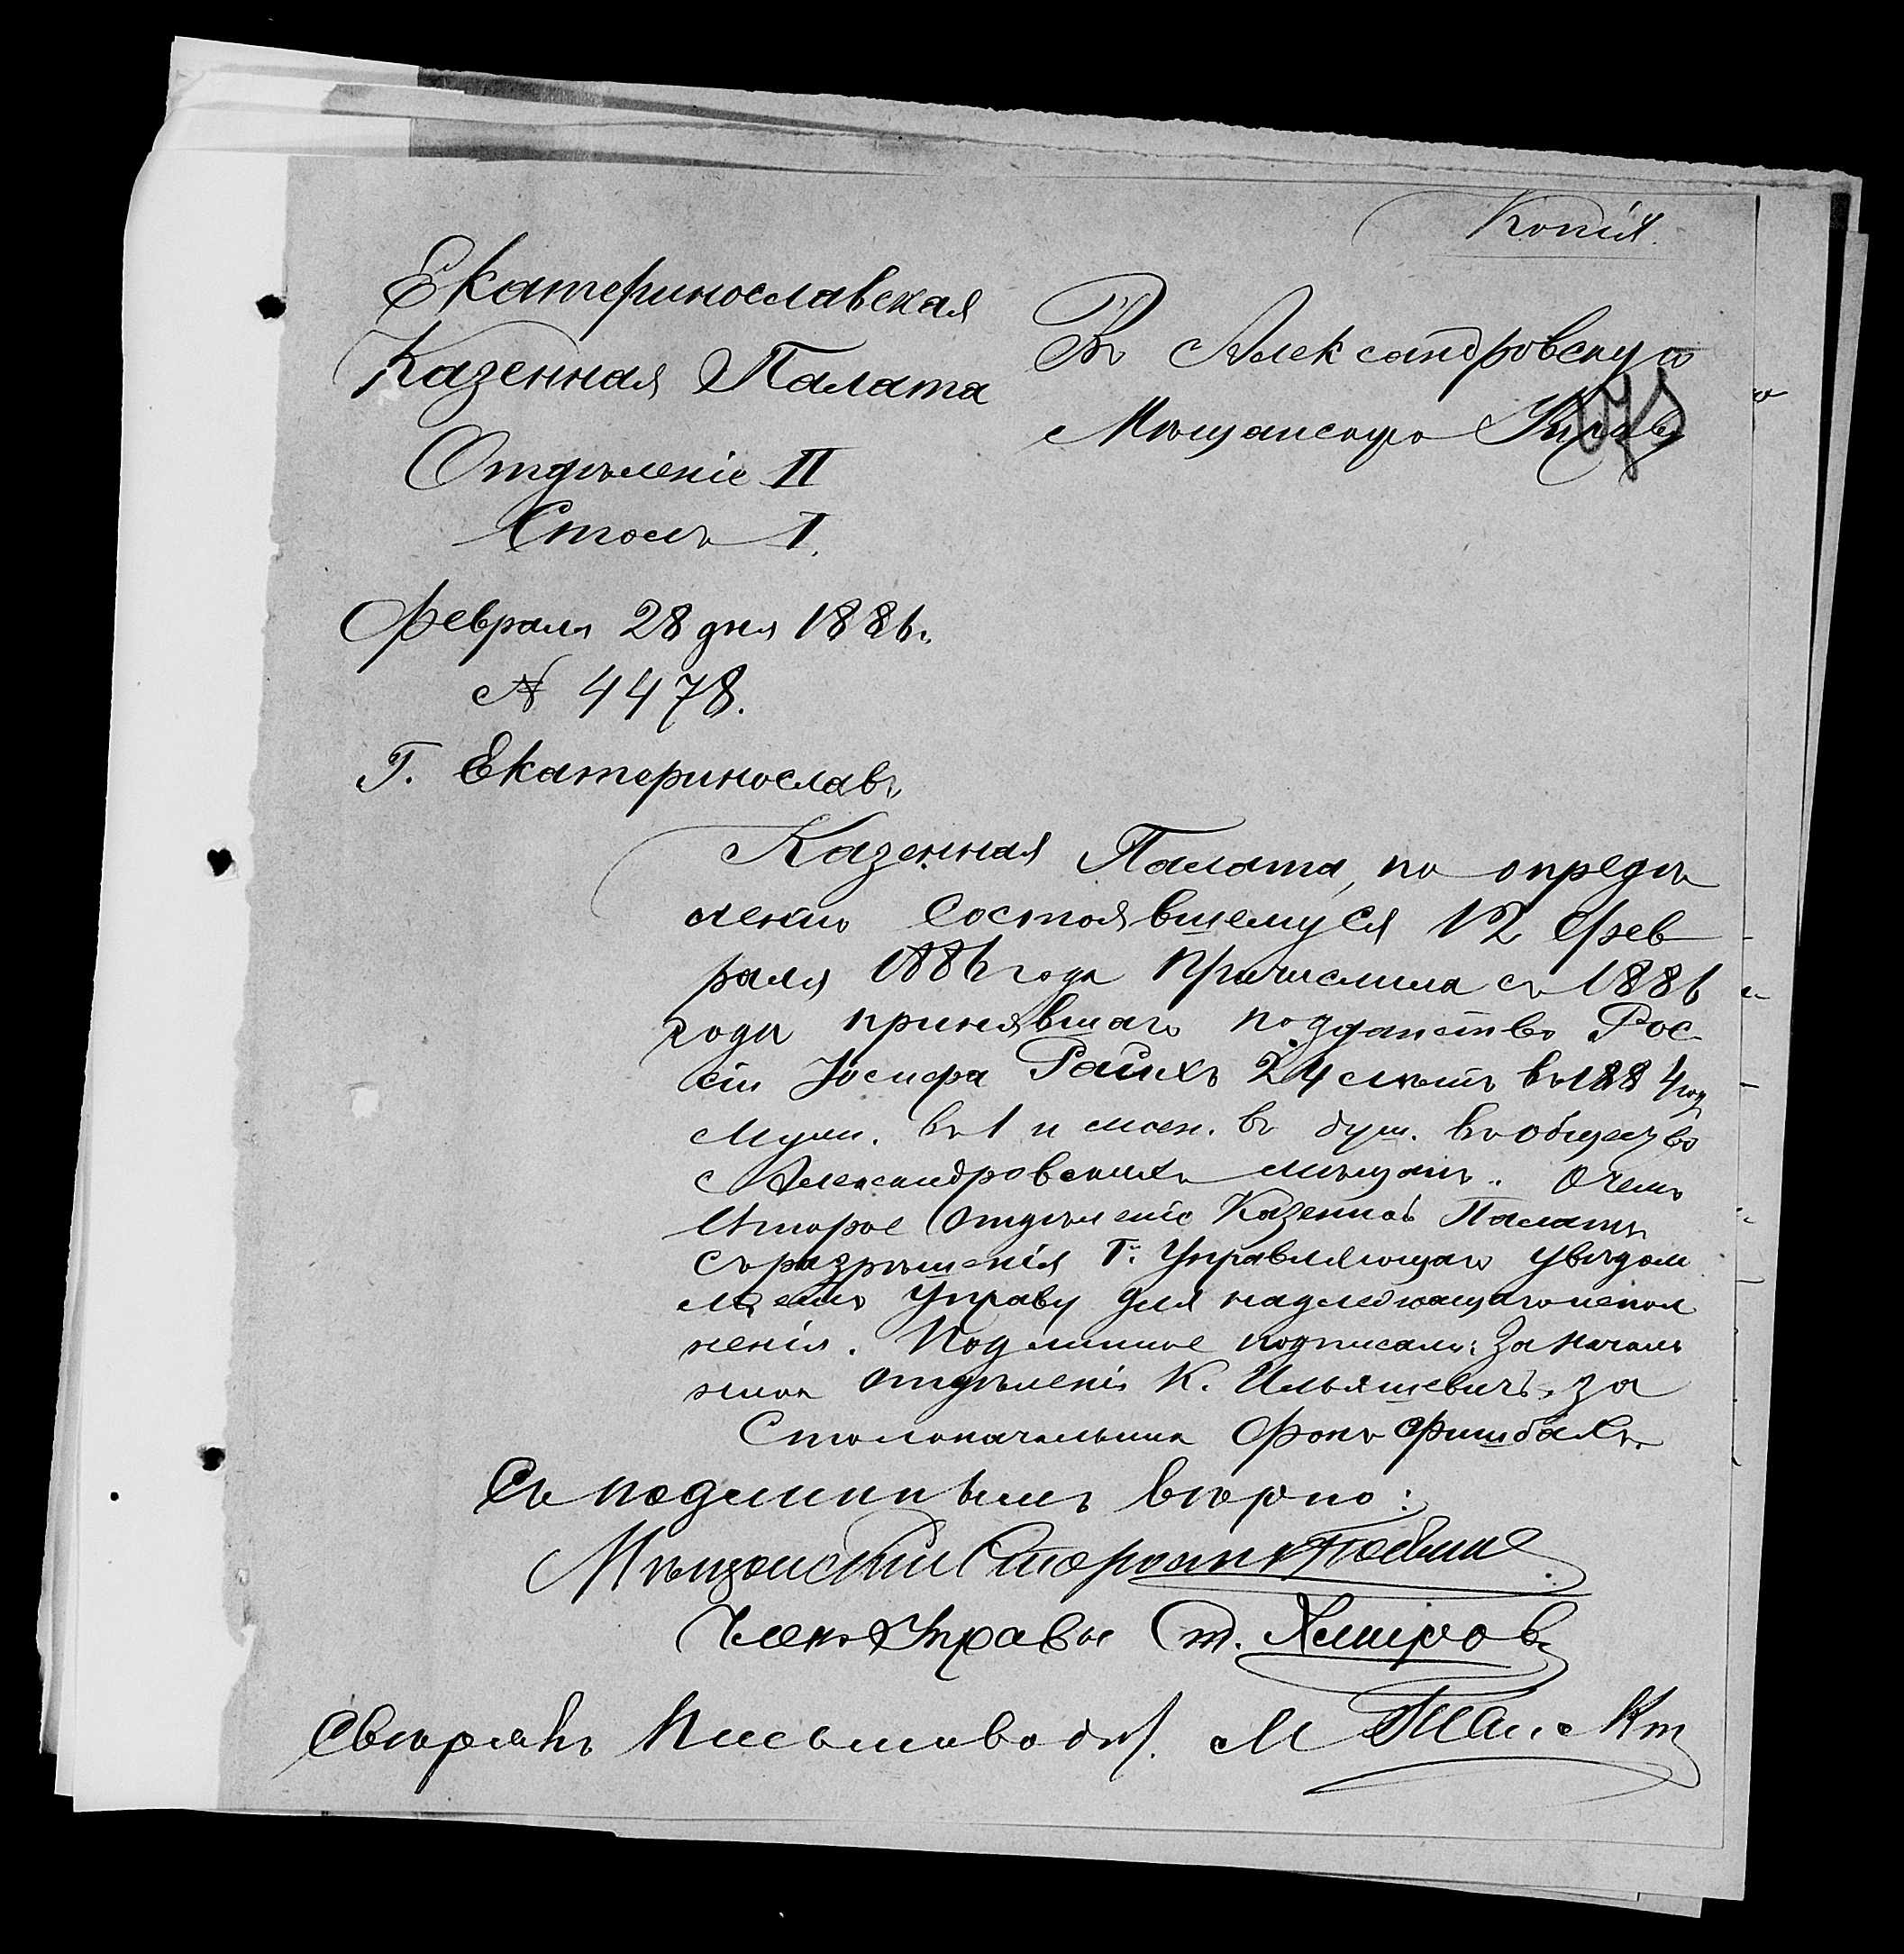 Копія.
Екатеринославская
Казенная Палата
Отдѣленіе II
Столъ I.
Февраля 28 дня 1886.
№ 4478.
Г. Екатеринославъ
Въ Александровскую
Мѣщанскую Управу
Казенная Палата, по опредѣ
ленію состоявшемуся 12 Фев
раля 1886 года причислила съ 1886
года принявшаго подданство Рос-
сіи Іосифа Райхъ 24 лѣтъ въ 1884 год
муж. въ 1 и жен. въ душ. въ общество
Александровскихъ мѣщанъ. О чемъ
Второе Отдѣленіе Казенной Палаты
съ разрѣшенія Г. Управляющаго увѣдом
ляетъ Управу для надлежащаго испол
ненія. Подлинное подписали: За Началь
ника Отдѣленія К. Ильяшевичъ, за
Столоначальника Фонъ Фишбахъ.
Съ подлиннымъ вѣрно:
Мѣщанскій Староста
Членъ Управы Ст.
Свѣрялъ Письмовод. М